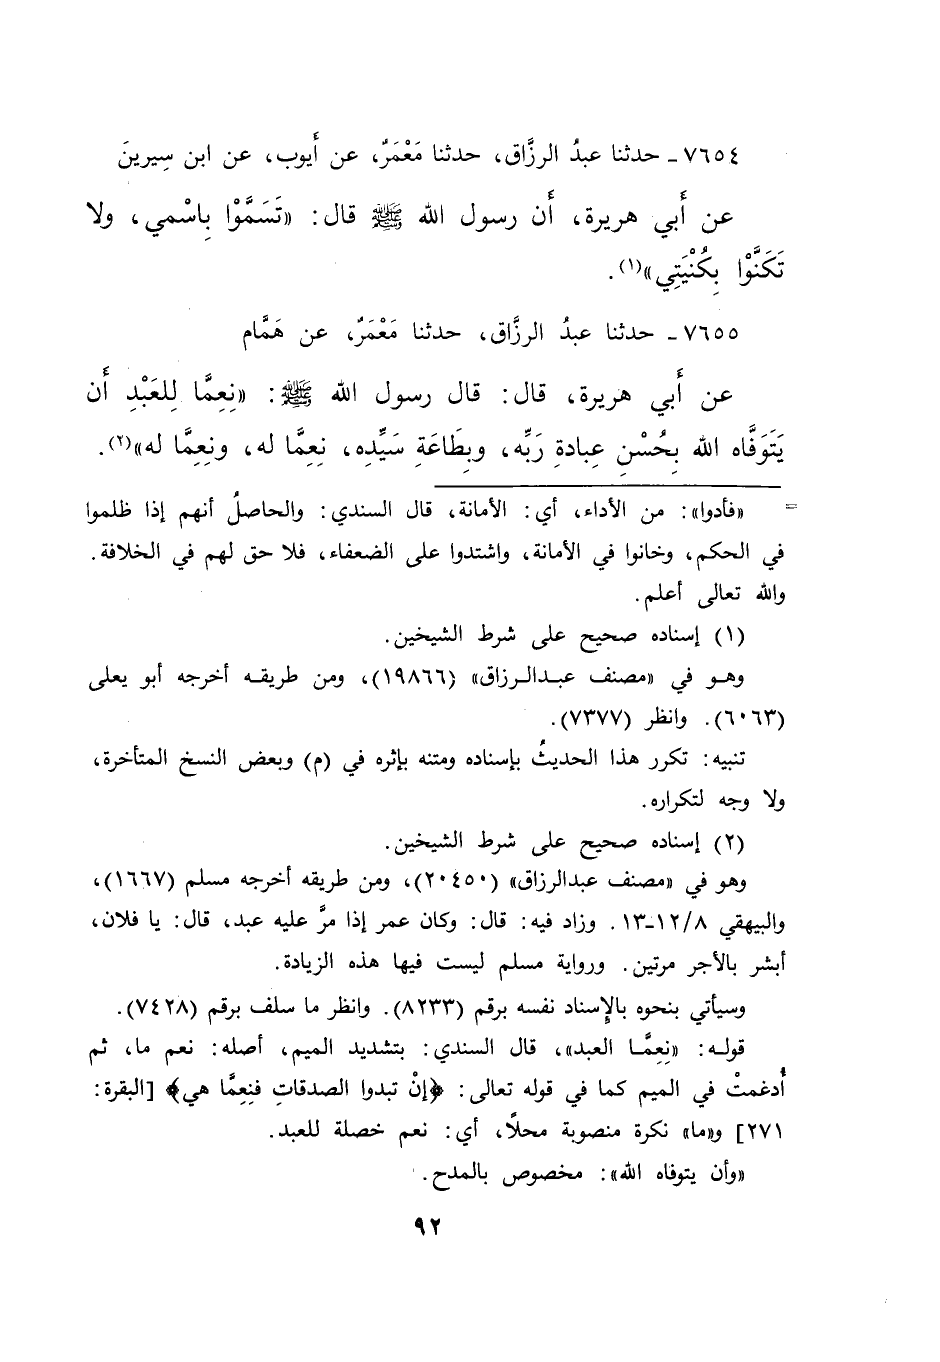 ٧٦٥٤ ـ حدثنا عبدُ الرزَّاق، حدثنا مَعْمَرٌ، عن أَيوب، عن ابن سِيرينَ
عن أَبي هريرة، أَن رسول الله ﷺ قال: «تَسَمَّوْا بِاسْمي، ولا
تَكَنَّوْا بِكُنْيَتِي»(١).
٧٦٥٥ ـ حدثنا عبدُ الرزَّاق، حدثنا مَعْمَرٌ، عن هَمَّام
عن أَبي هريرة، قال: قال رسول الله ﷺ: «نِعِمَّا لِلعَبْدِ أَن
يَتَوَفَّاه الله بِحُسْنِ عِبادةِ رَبِّه، وبِطَاعَةِ سَيِّدِه، نِعِمَّا له، ونِعِمَّا له»(٢).
= «فأدوا»: من الأداء، أي: الأمانة، قال السندي: والحاصلُ أنهم إذا ظلموا
في الحكم، وخانوا في الأمانة، واشتدوا على الضعفاء، فلا حق لهم في الخلافة.
والله تعالى أعلم.
(١) إسناده صحيح على شرط الشيخين.
وهو في «مصنف عبدالرزاق» (١٩٨٦٦)، ومن طريقه أخرجه أبو يعلى
(٦٠٦٣). وانظر (٧٣٧٧).
تنبيه: تكرر هذا الحديثُ بإسناده ومتنه بإثره في (م) وبعض النسخ المتأخرة،
ولا وجه لتكراره.
(٢) إسناده صحيح على شرط الشيخين.
وهو في «مصنف عبدالرزاق» (٢٠٤٥٠)، ومن طريقه أخرجه مسلم (١٦٦٧)،
والبيهقي ١٢/٨ـ١٣. وزاد فيه: قال: وكان عمر إذا مرَّ عليه عبد، قال: يا فلان،
أبشر بالأجر مرتين. ورواية مسلم ليست فيها هذه الزيادة.
وسيأتي بنحوه بالإِسناد نفسه برقم (٨٢٣٣). وانظر ما سلف برقم (٧٤٢٨).
قوله: «نِعِمَّا العبد»، قال السندي: بتشديد الميم، أصله: نعم ما، ثم
أُدغمتْ في الميم كما في قوله تعالى: ﴿إنْ تبدوا الصدقاتِ فنِعِمَّا هي﴾ [البقرة:
٢٧١] و«ما» نكرة منصوبة محلاً، أي: نعم خصلة للعبد.
«وأن يتوفاه الله»: مخصوص بالمدح.
٩٢